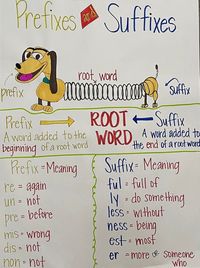 Prefixes and Suffixes
root word
prefix
Suffix
Prefix
A word added to the beginning of a root word
ROOT WORD
Suffix
A word added to the end of a root word
Prefix = Meaning
re = again
un = not
pre = before
mis = wrong
dis = not
non = not
Suffix = Meaning
ful = full of
ly = do something
less = without
ness = being
est = most
er = more or someone who